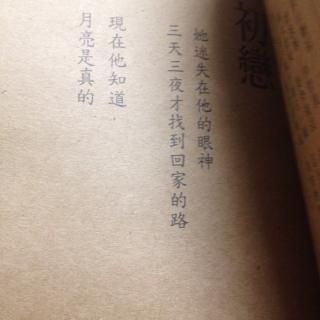 初戀
她迷失在他的眼神
三天三夜才找到回家的路
現在他知道
月亮是真的